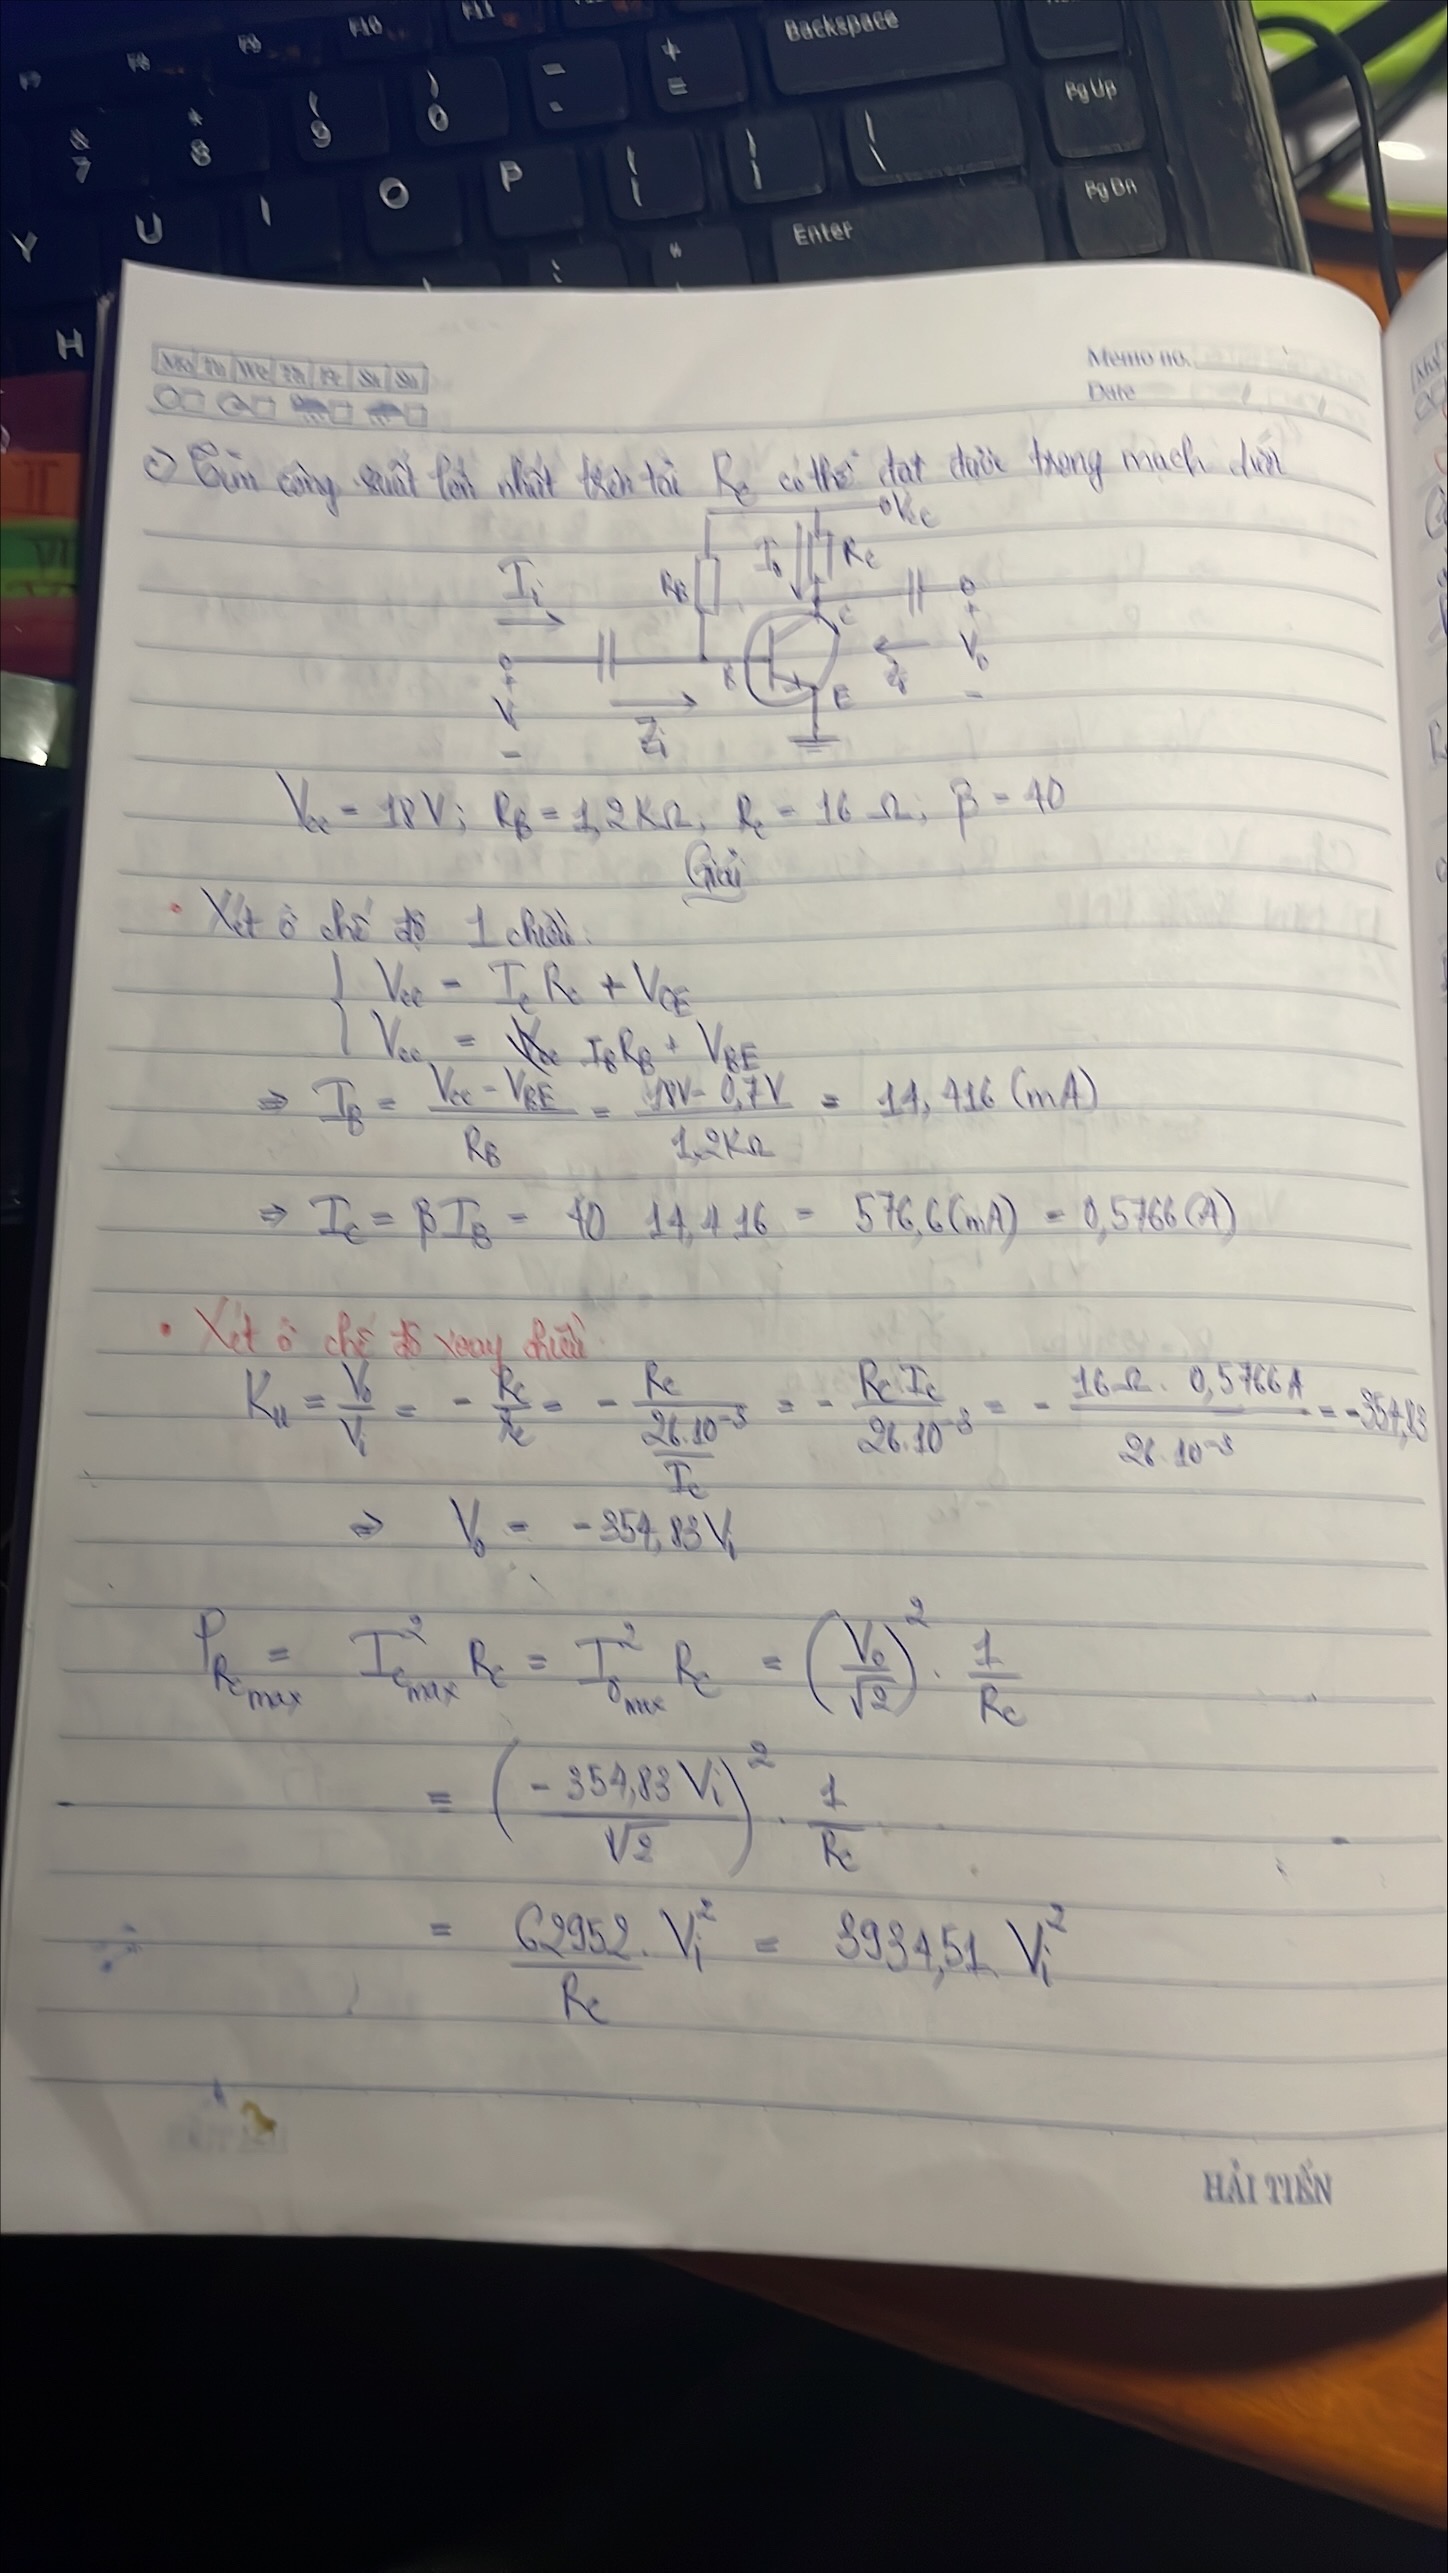 F7 F8 F9 F10 F11
& 7 * 8 ( 9 ) 0 - + = Backspace
Pg Up
Y U I O P { [ } ] | \
Pg Dn
H : " Enter
Mo Tu We Th Fr Sa Su
Memo no.
Date
c) Tìm công suất lớn nhất trên tải Rc có thể đạt được trong mạch dưới
Vcc
Ii RB Io Rc
C
+ B Zo Vo
Vi E
- Zi -
Vcc = 18V; RB = 1,2KΩ; Rc = 16 Ω; β = 40
Giải
• Xét ở chế độ 1 chiều:
Vcc = Ic Rc + VCE
Vcc = IB RB + VBE
⇒ IB = (Vcc - VBE) / RB = (18V - 0,7V) / 1,2KΩ = 14,416 (mA)
⇒ Ic = β IB = 40 14,416 = 576,6(mA) = 0,5766(A)
• Xét ở chế độ xoay chiều:
Ku = Vo / Vi = - Rc / re = - Rc / (26.10⁻³ / Ic) = - Rc.Ic / 26.10⁻³ = - 16Ω. 0,5766A / 26.10⁻³ = -354,83
⇒ Vo = -354,83Vi
PRc max = I²c max Rc = I²o max Rc = (Vo / √2)² . 1 / Rc
= (-354,83 Vi / √2)² . 1 / Rc
= 62952 / Rc . Vi² = 3934,51 Vi²
HẢI TIẾN